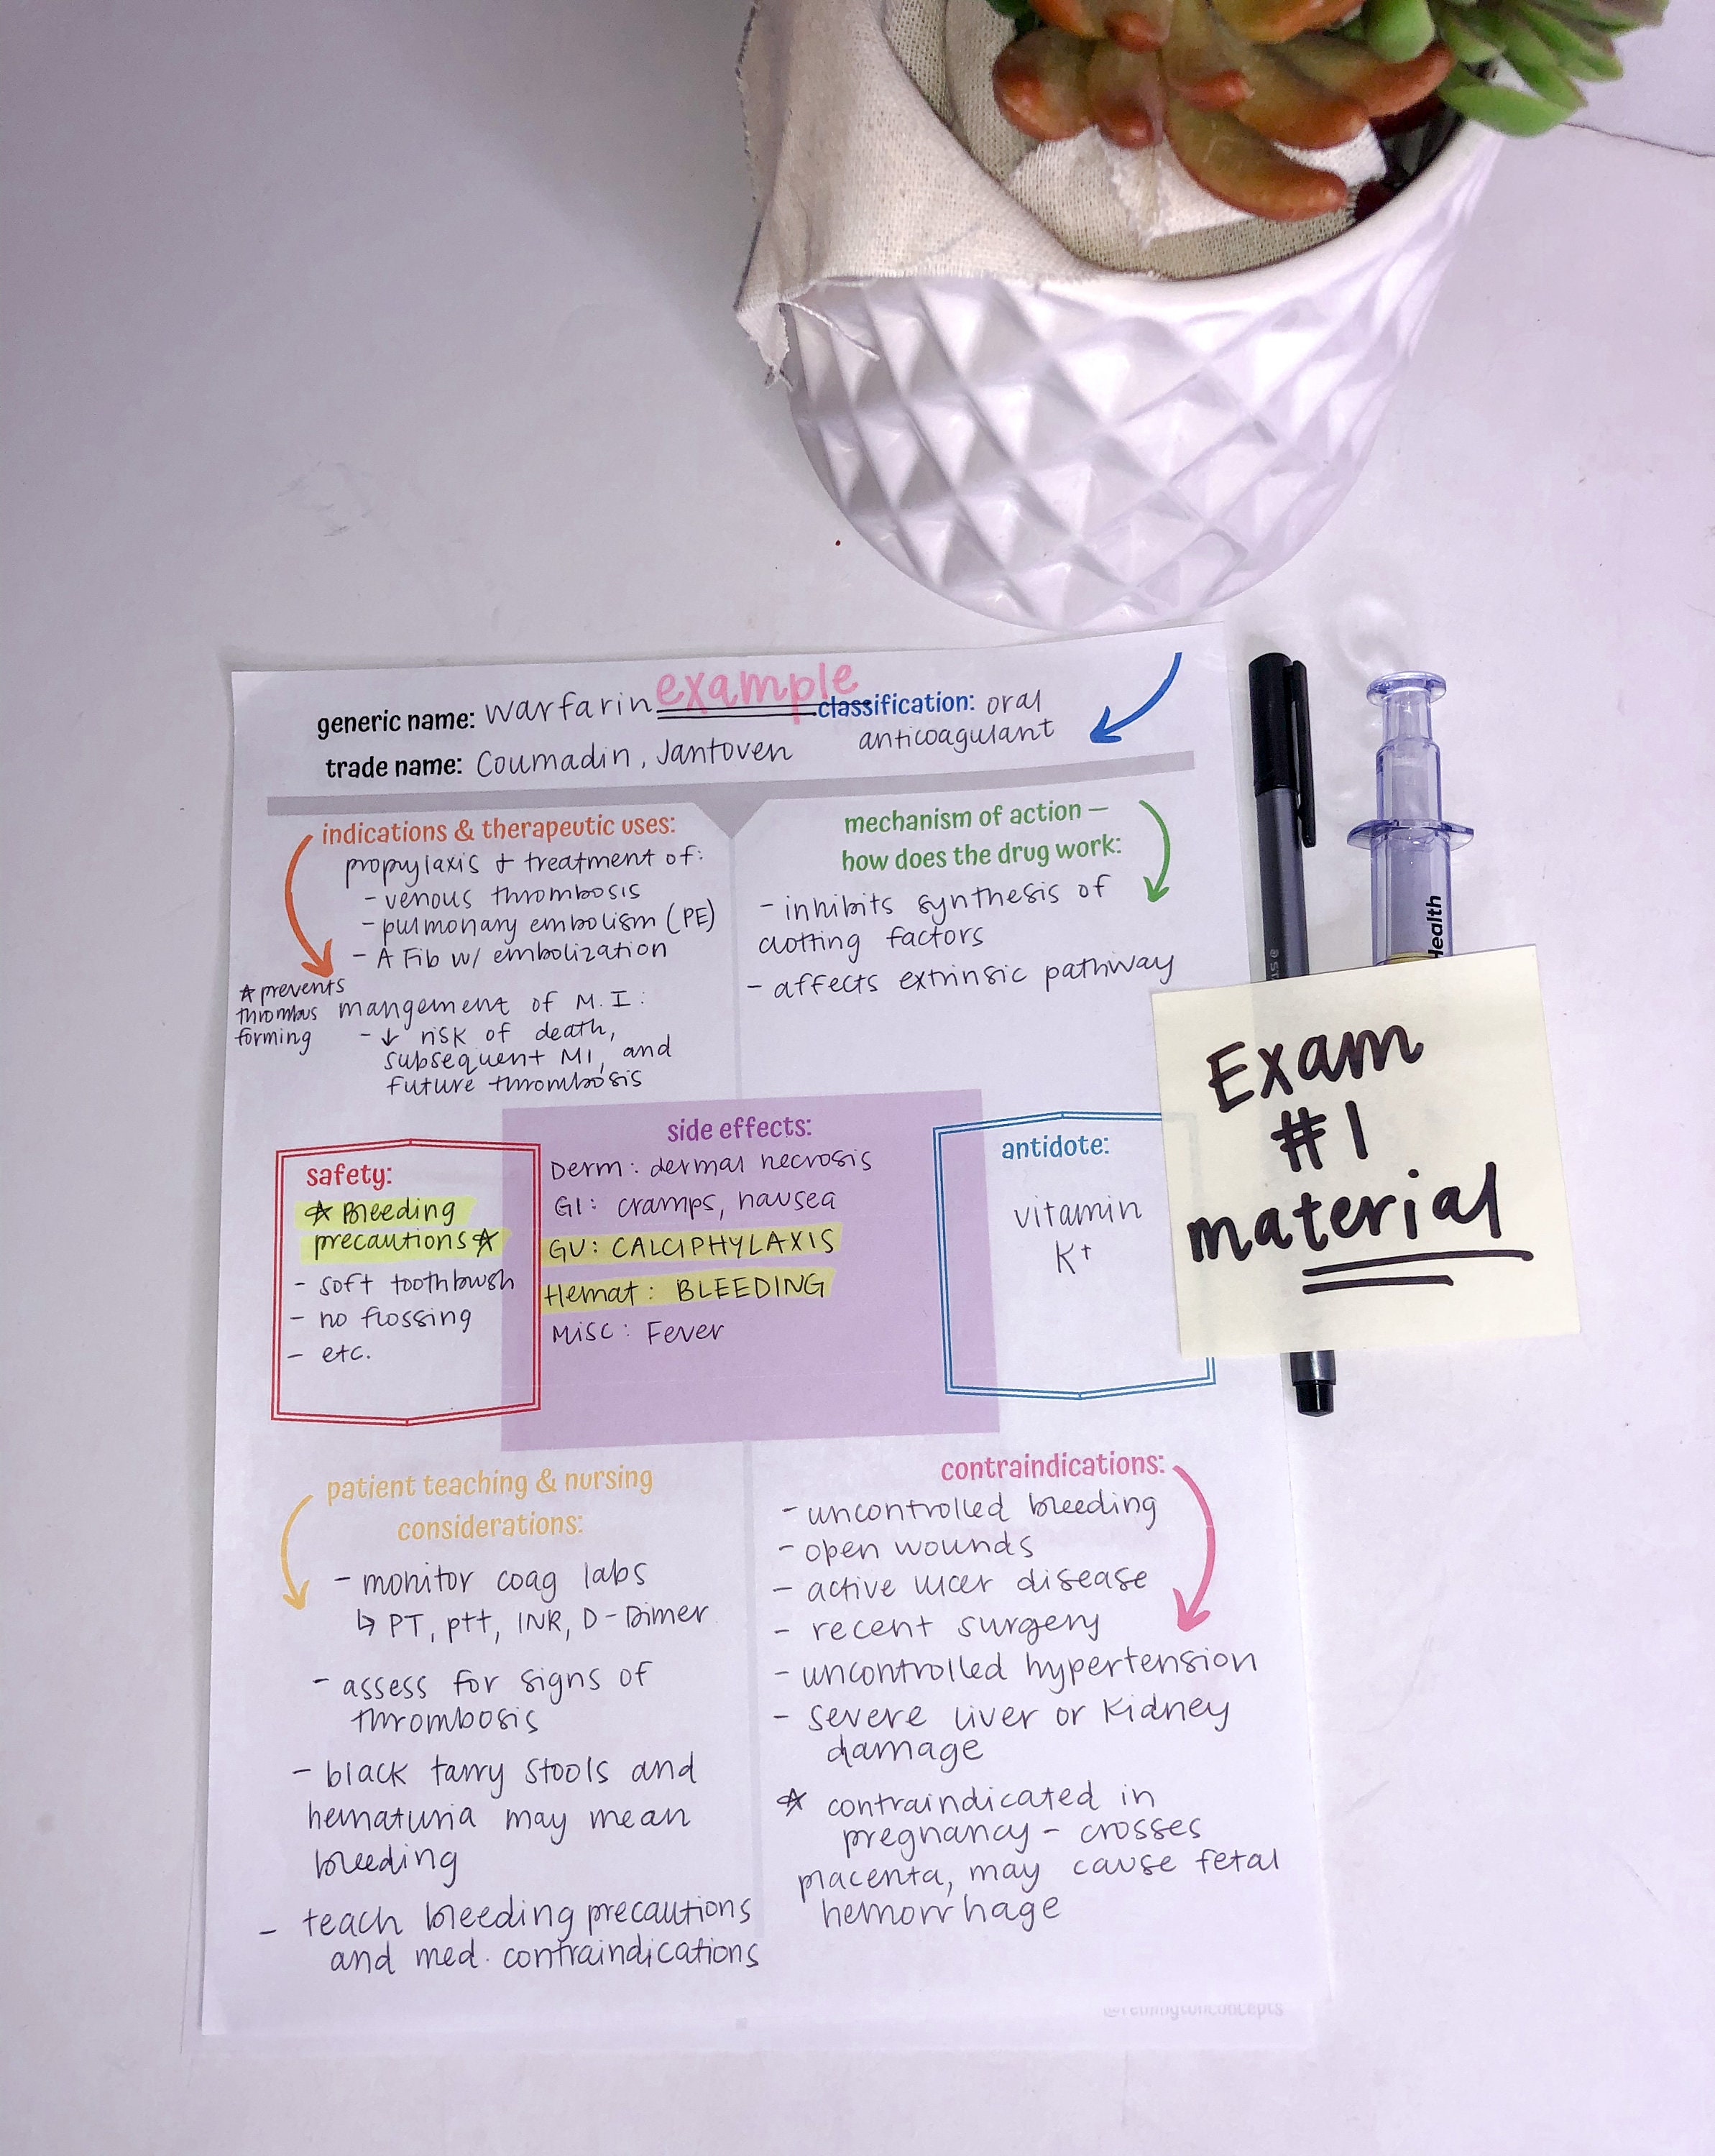 example
generic name: warfarin
classification: oral
anticoagulant
trade name: Coumadin, Jantoven
indications & therapeutic uses:
propylaxis + treatment of:
- venous thrombosis
- pulmonary embolism (PE)
- A Fib w/ embolization
☆ prevents
thrombus
forming
mangement of M.I:
- ↓ risk of death,
subsequent MI, and
future thrombosis
mechanism of action —
how does the drug work:
- inhibits synthesis of
clotting factors
- affects extrinsic pathway
Health
Exam
#1
material
safety:
☆ Bleeding
precautions ☆
- soft toothbrush
- no flossing
- etc.
side effects:
Derm: dermal necrosis
GI: cramps, nausea
GU: CALCIPHYLAXIS
Hemat: BLEEDING
Misc: Fever
antidote:
vitamin
K+
patient teaching & nursing
considerations:
- monitor coag labs
↳ PT, ptt, INR, D-Dimer
- assess for signs of
thrombosis
- black tarry stools and
hematuria may mean
bleeding
- teach bleeding precautions
and med. contraindications
contraindications:
- uncontrolled bleeding
- open wounds
- active ulcer disease
- recent surgery
- uncontrolled hypertension
- severe liver or kidney
damage
☆ contraindicated in
pregnancy - crosses
placenta, may cause fetal
hemorrhage